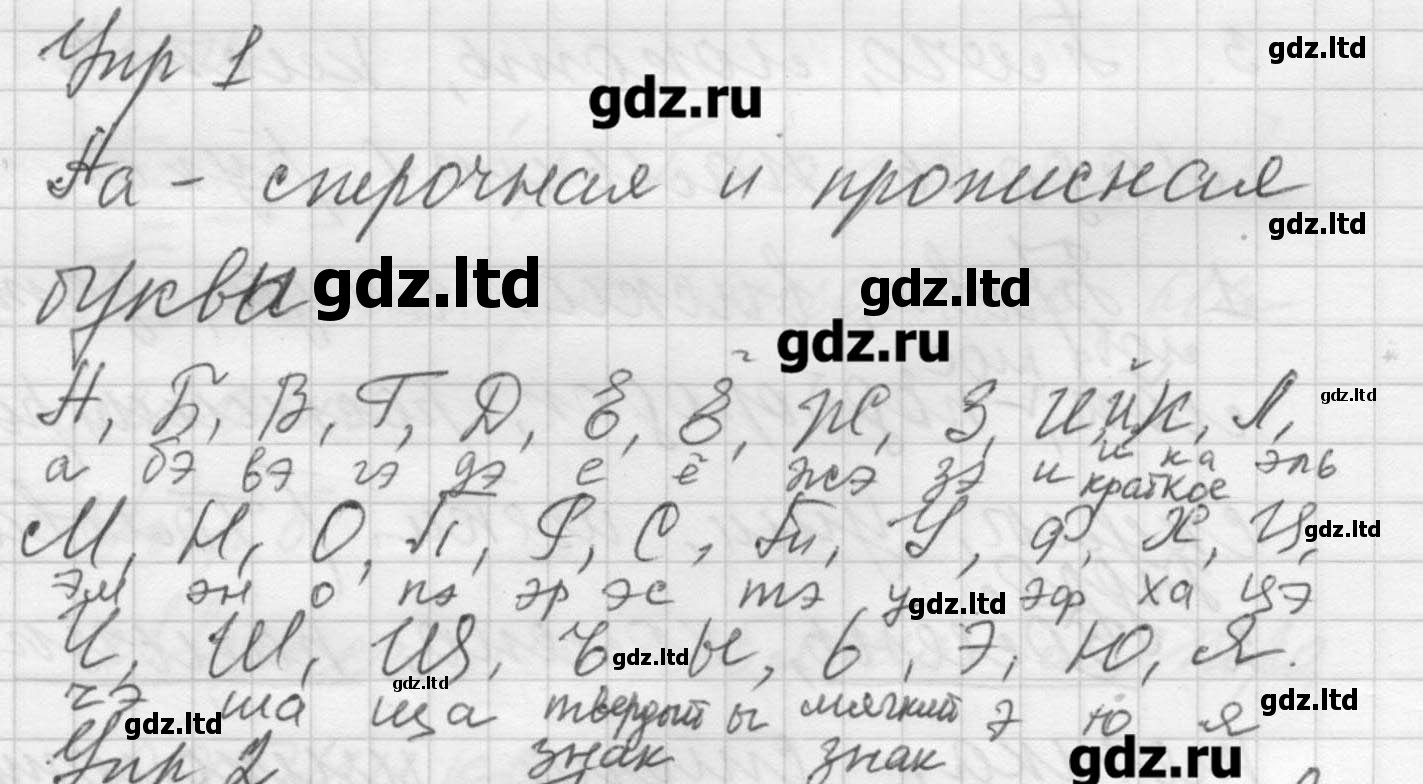 Упр 1
gdz.ltd
gdz.ru
Аа - строчная и прописная
gdz.ltd
буквы
gdz.ltd
gdz.ltd
gdz.ru
А, Б, В, Г, Д, Е, Ё, Ж, З, И, Й, К, Л,
gdz.ltd
а бэ вэ гэ дэ е ё жэ зэ и и ка эль
краткое
М, Н, О, П, Р, С, Т, У, Ф, Х, Ц,
gdz.ltd
эм эн о пэ эр эс тэ у эф ха цэ
gdz.ltd
Ч, Ш, Щ, ъ ы, ь, Э, Ю, Я.
gdz.ltd
gdz.ltd
чэ ша ща твердый ы мягкий э ю я
gdz.ltd
gdz.ltd
Упр 2 знак знак
gdz.ru